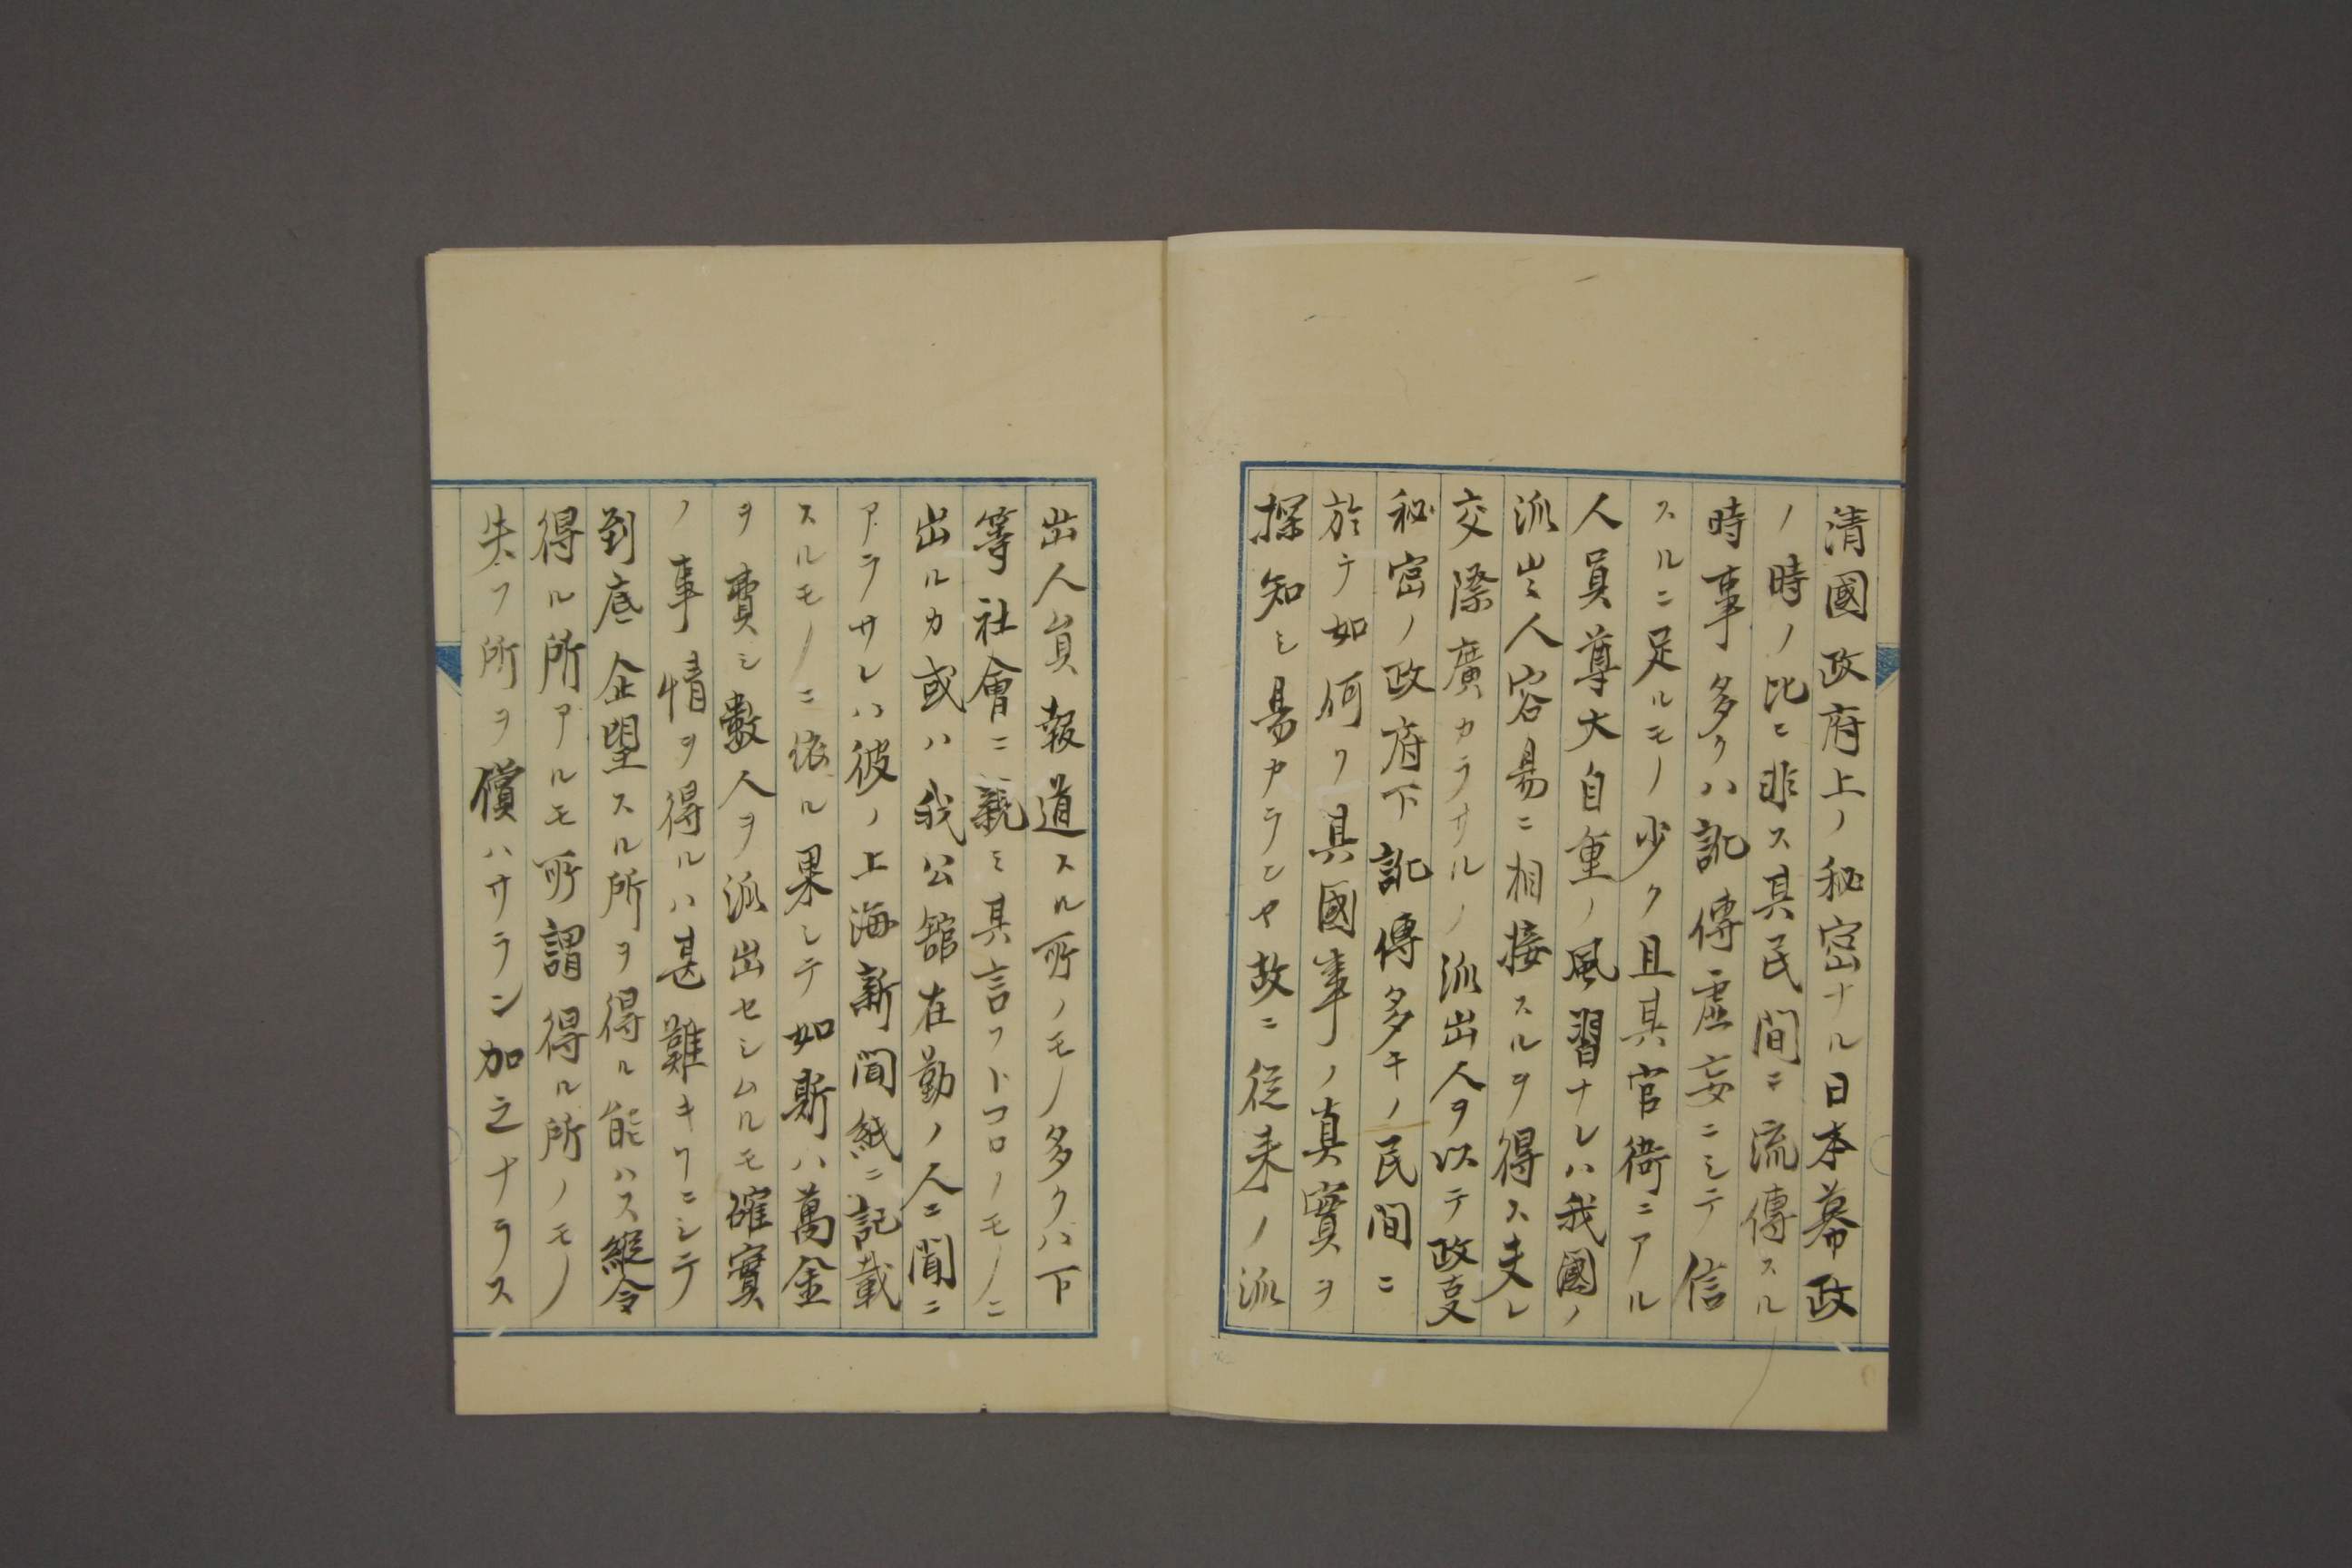 清國政府上ノ秘密ナル日本幕政
ノ時ノ比ニ非ス其民間ニ流傳スル
時事多クハ訛傳虚妄ニシテ信
スルニ足ルモノ少ク且其官衙ニアル
人員尊大自重ノ風習ナレハ我國ノ
派出人容易ニ相接スルヲ得ス夫レ
交際廣カラサルノ派出人ヲ以テ政叓
秘密ノ政府下訛傳多キノ民間ニ
於テ如何ソ其國事ノ真實ヲ
探知シ易カランヤ故ニ従来ノ派
出人員報道スル所ノモノ多クハ下
等社會ニ親ミ其言フトコロノモノニ
出ルカ或ハ我公舘在勤ノ人ニ聞ニ
アラサレハ彼ノ上海新聞紙ニ記載
スルモノニ依ル果シテ如斯ハ萬金
ヲ費シ數人ヲ派出セシムルモ確實
ノ事情ヲ得ルハ甚難キヿニシテ
到底企望スル所ヲ得ル能ハス縦令
得ル所アルモ所謂得ル所ノモノ
失フ所ヲ償ハサラン加之ナラス